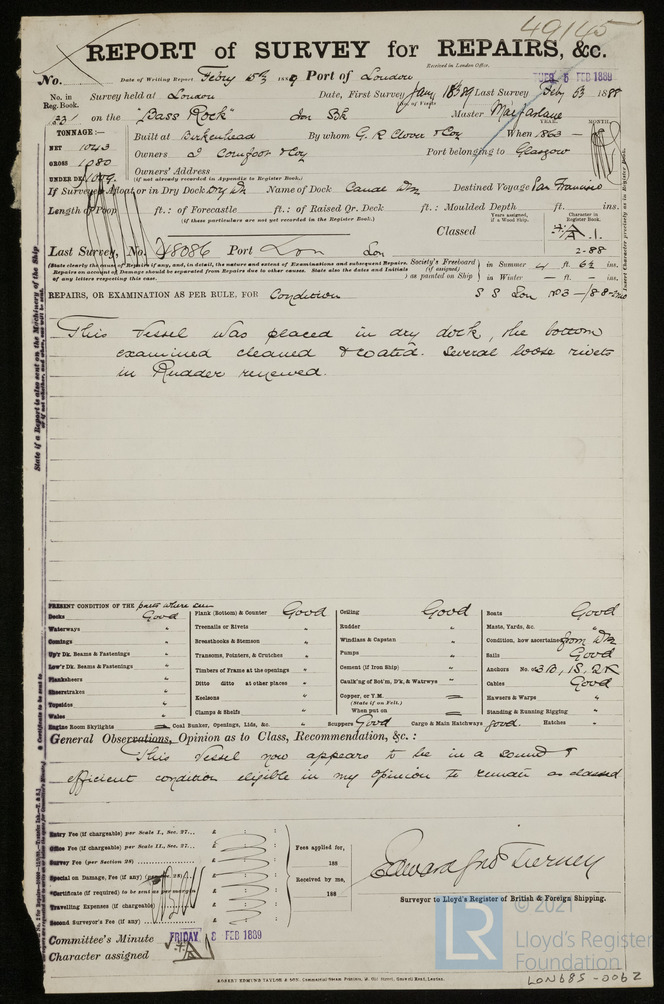 49145
REPORT of SURVEY for REPAIRS, &c.
Received in London Office.
No. Date of Writing Report Febry 5th 1889 Port of London TUES. 5 FEB 1889
No. in Reg. Book. Survey held at London Date, First Survey Jany 18th 89 Last Survey Feby 5th 1889
on the "Bass Rock" Master Macfarlane
TONNAGE:—
NET 1043
GROSS 1080
UNDER DK.
Built at Birkenhead By whom G. R. Clover & Co When 1863
YEAR. MONTH.
Owners Port belonging to Glasgow
Owners' Address
(if not already recorded in Appendix to Register Book.)
If Surveyed Afloat or in Dry Dock Dry Dk Name of Dock Canal Dk Destined Voyage San Francisco
Length of Poop ft.: of Forecastle ft.: of Raised Qr. Deck ft.: Moulded Depth ft. ins.
(if these particulars are not yet recorded in the Register Book.)
Years assigned, if a Wood Ship.
Character in Register Book.
Classed A.1.
2-88
Last Survey, No. 48086 Port Lon Lon
(State clearly the cause of Repairs if any, and, in detail, the nature and extent of Examinations and subsequent Repairs.
Repairs on account of Damage should be separated from Repairs due to other causes. State also the dates and Initials
of any letters respecting this case.)
Society's Freeboard (if assigned) as painted on Ship
in Summer ft. 6½ ins.
in Winter — ft. — ins.
REPAIRS, OR EXAMINATION AS PER RULE, FOR Condition S S Lon No 3
This vessel was placed in dry dock, the bottom
examined cleaned & coated. Several loose rivets
in Rudder renewed.
PRESENT CONDITION OF THE parts where seen
Decks Good
Waterways "
Comings "
Up'r Dk. Beams & Fastenings "
Low'r Dk. Beams & Fastenings "
Planksheers "
Sheerstrakes "
Topsides "
Wales "
Engine Room Skylights
Plank (Bottom) & Counter Good
Treenails or Rivets "
Breasthooks & Stemson "
Transoms, Pointers, & Crutches "
Timbers of Frame at the openings "
Ditto ditto at other places "
Keelsons "
Clamps & Shelfs "
Coal Bunker, Openings, Lids, &c. "
Ceiling Good
Rudder "
Windlass & Capstan "
Pumps "
Cement (if Iron Ship) "
Caulk'ng of Bot'm, D'k, & Watrwys "
Copper, or Y.M.
(State if on Felt.)
When put on
Scuppers Good Cargo & Main Hatchways good. Hatches "
Boats Good
Masts, Yards, &c. "
Condition, how ascertained from Dk
Sails Good
Anchors No. 3B, 1S, 2K
Cables Good
Hawsers & Warps "
Standing & Running Rigging "
General Observations, Opinion as to Class, Recommendation, &c.:
This vessel now appears to be in a sound &
efficient condition eligible in my opinion to remain as classed
Entry Fee (if chargeable) per Scale I., Sec. 27... £ : :
Office Fee (if chargeable) per Scale II., Sec. 27... £ : :
Survey Fee (per Section 28) £ : :
Special on Damage, Fee (if any) (per Sec. 28) £ : :
Certificate (if required) to be sent as per margin £ : :
Travelling Expenses (if chargeable) £ : :
Second Surveyor's Fee (if any) £ : :
Fees applied for, 188
Received by me, 188
Edward Jno Tierney
Surveyor to Lloyd's Register of British & Foreign Shipping.
Committee's Minute FRIDAY 8 FEB 1889
Character assigned A
ROBERT EDMUND TAYLOR & SON
LR © 2021
Lloyd's Register
Foundation
LON685-0062
Insert Character precisely as in Register Book.
State if a Report is also sent on the Machinery of the Ship